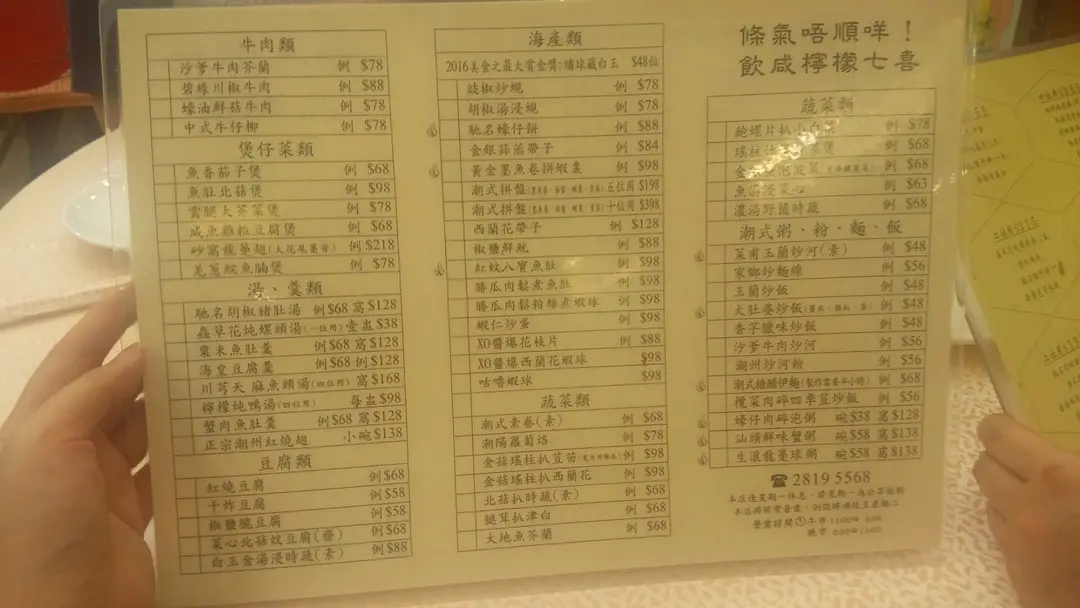 牛肉類
沙爹牛肉芥蘭 例 $78
碧綠川椒牛肉 例 $88
蠔油鮮菇牛肉 例 $78
中式牛仔柳 例 $78
煲仔菜類
魚香茄子煲 例 $68
魚肚北菇煲 例 $98
大芥菜煲 例 $78
咸魚雞粒豆腐煲 例 $68
砂窩龍躉翅(大花尾躉骨) 例 $218
魚腩煲 例 $78
湯、羹類
馳名胡椒豬肚湯 例$68 窩$128
蟲草花炖螺頭湯(一位用) 壹盅$38
粟米魚肚羹 例$68 窩$128
海皇豆腐羹 例$68 例$128
川芎天麻魚頭湯(四位用) 窩$168
檸檬炖鴨湯(四位用) 每盅$98
蟹肉魚肚羹 例$68 窩$128
正宗潮州紅燒翅 小碗$138
豆腐類
紅燒豆腐 例$68
干炸豆腐 例$58
椒鹽脆豆腐 例$58
菜心北菇炆豆腐(齋) 例$68
白玉金湯浸時蔬(素) 例$88
海產類
2016美食之最大賞金獎:繡球藏白玉 $48位
豉椒炒蜆 例 $78
胡椒湯浸蜆 例 $78
馳名蠔仔餅 例 $88
金銀蒜蒸帶子 例 $84
黃金墨魚卷拼蝦棗 例 $98
潮式拼盤 五位用 $198
潮式拼盤 十位用 $398
西蘭花帶子 例 $128
椒鹽鮮魷 例 $88
紅炆八寶魚肚 例 $98
勝瓜肉鬆煮魚肚 例 $98
勝瓜肉鬆粉絲煮蝦球 例 $98
蝦仁炒蛋 例 $98
XO醬爆花枝片 例 $88
XO醬爆西蘭花蝦球 $98
咕嚕蝦球 $98
蔬菜類
潮式素卷(素) 例 $68
潮陽蘿蔔烙 例 $78
金菇瑤柱扒莧苗 例 $98
金菇瑤柱扒西蘭花 例 $98
北菇扒時蔬(素) 例 $68
腿茸扒津白 例 $68
大地魚芥蘭 例 $68
條氣唔順咩！
飲咸檸檬七喜
蔬菜類
鮑螺片扒小 例 $78
瑤柱 煲 例 $68
金 浸 例 $68
魚湯浸菜心 例 $63
濃湯野菌時蔬 例 $68
潮式粥、粉、麵、飯
菜甫玉蘭炒河(素) 例 $48
家鄉炒麵線 例 $56
玉蘭炒飯 例 $48
大肚婆炒飯 例 $48
香芋臘味炒飯 例 $48
沙爹牛肉炒河 例 $56
潮州炒河粉 例 $56
潮式糖醋伊麵(製作需要半小時) 例 $68
欖菜肉碎四季荳炒飯 例 $56
蠔仔肉碎泡粥 碗$38 窩$128
汕頭鮮味蟹粥 碗$58 窩$138
生滾龍躉球粥 碗$58 窩$138
☎ 2819 5568
本店逢星期一休息，若星期一為公眾假期
本店將照常營業，
營業時間 午市 11:00
晚市